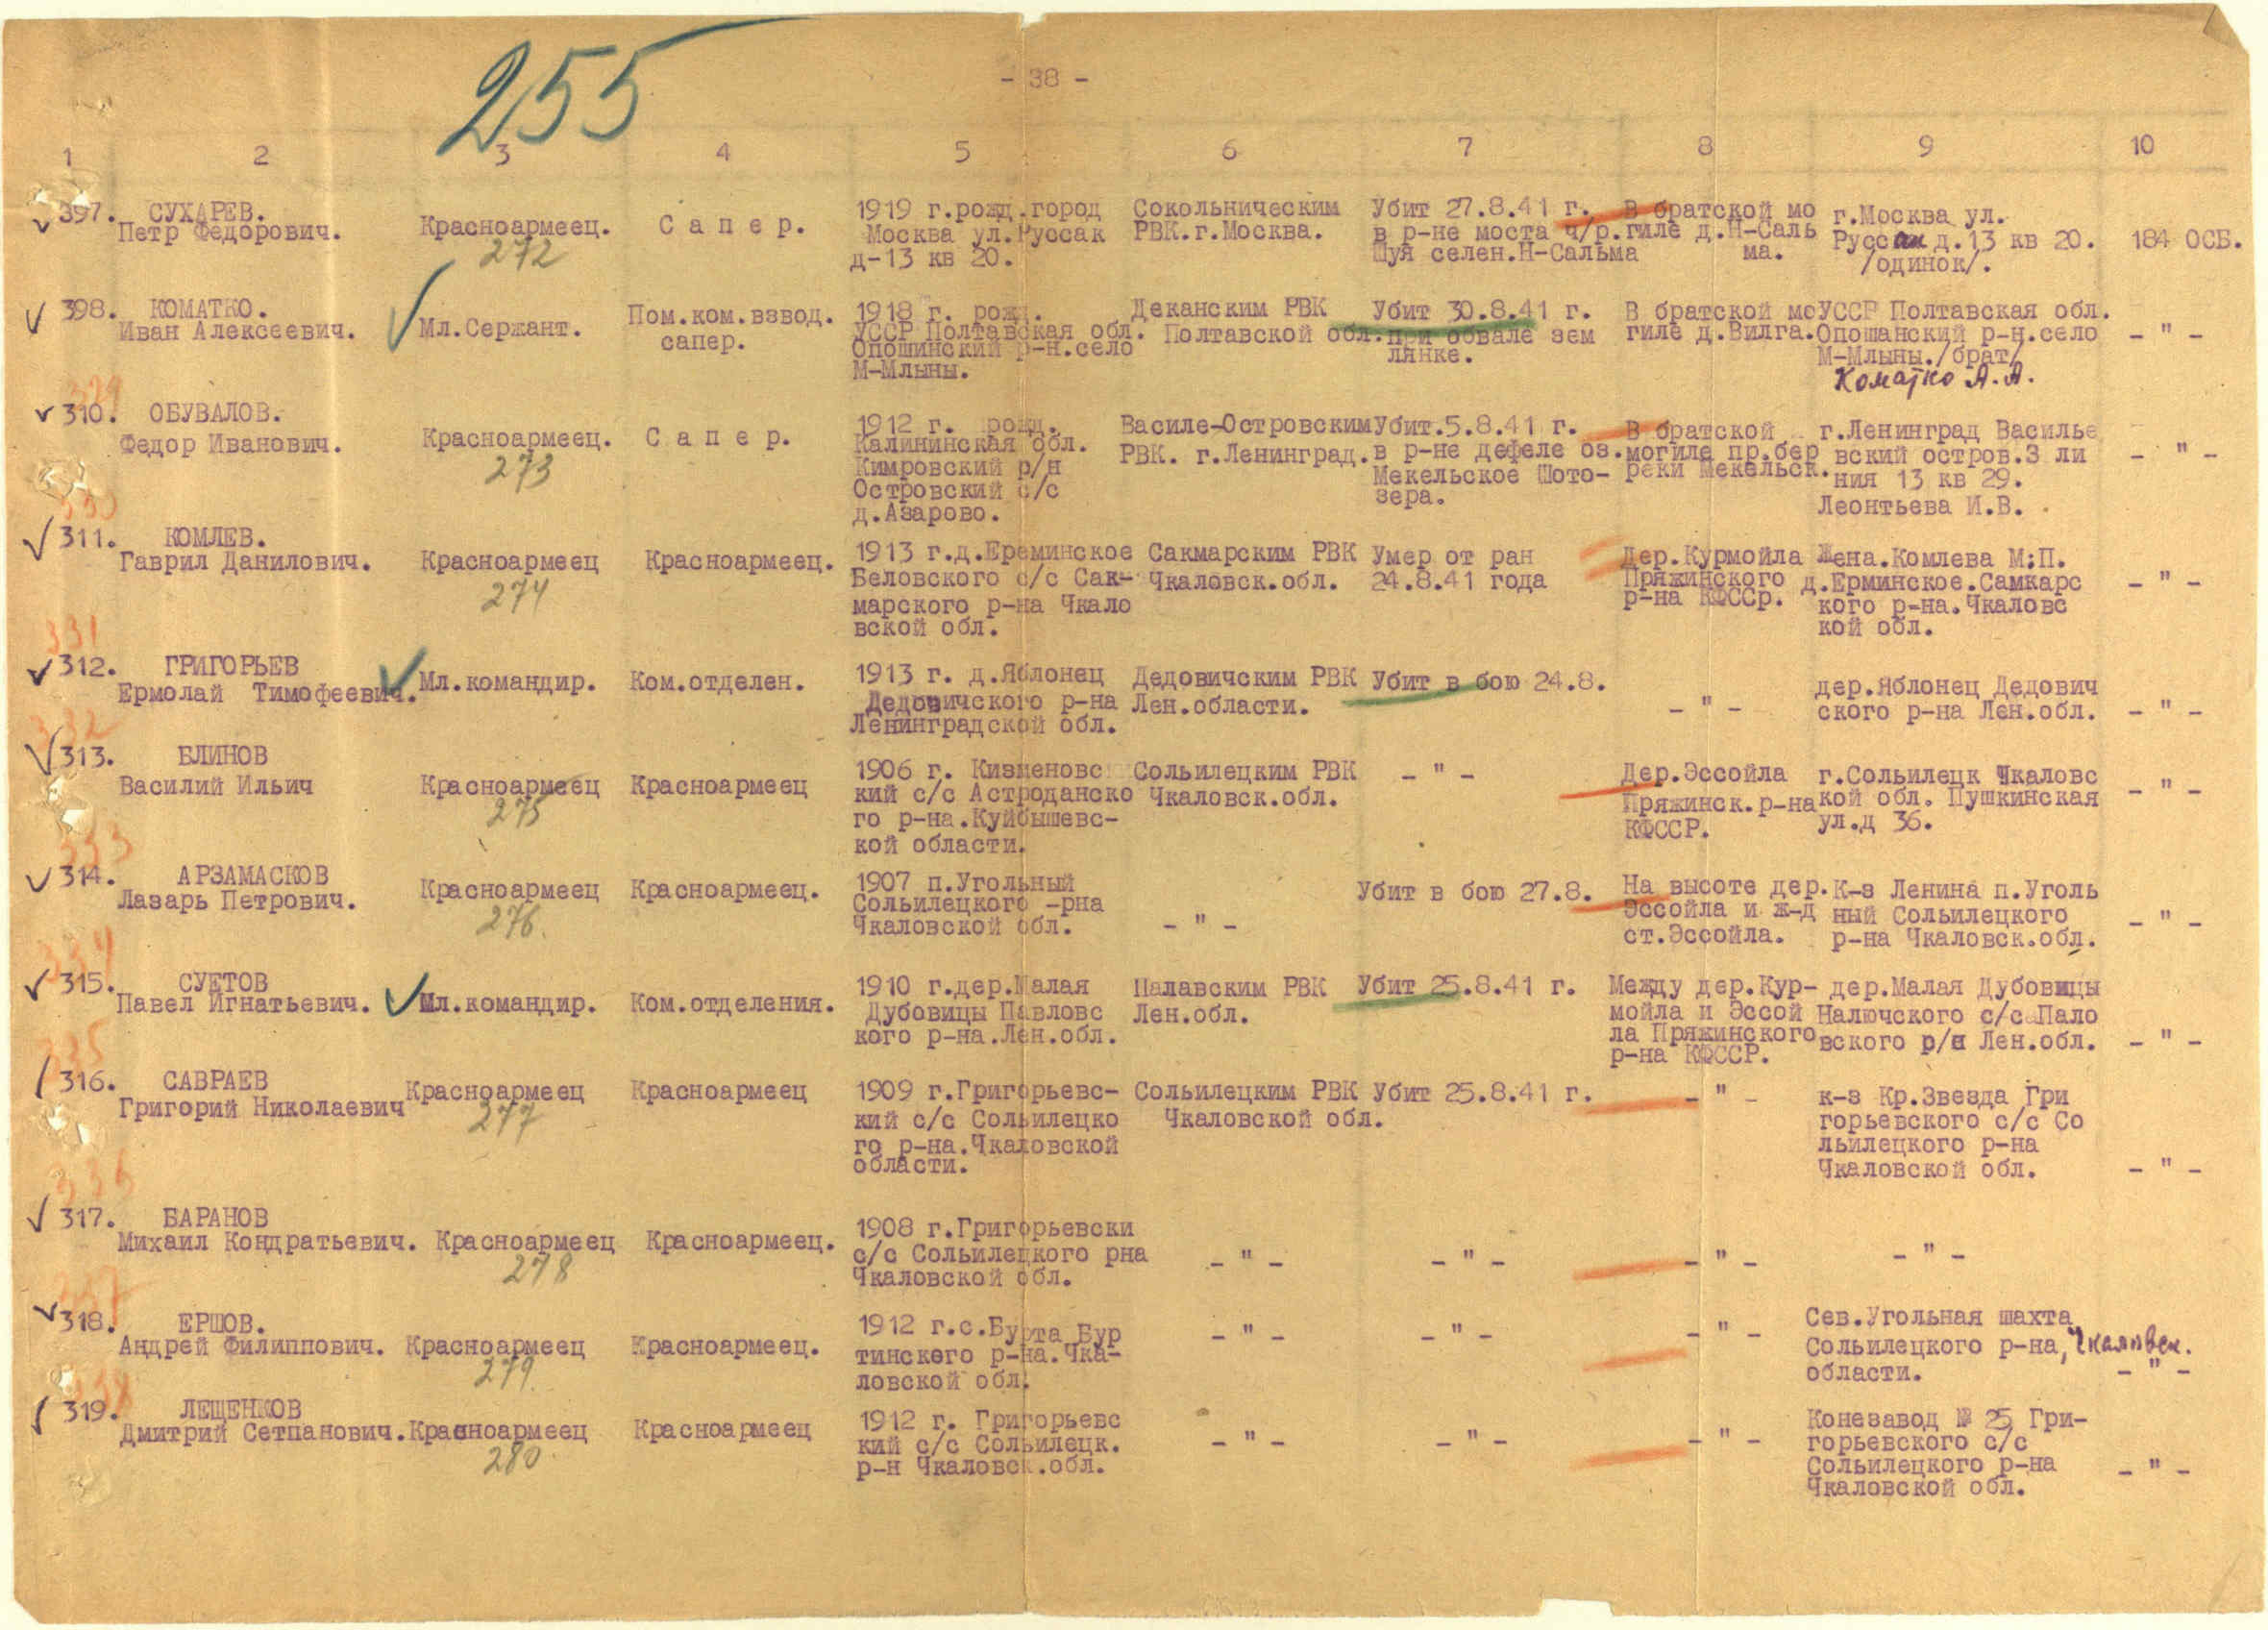 255
- 38 -
1 2 3 4 5 6 7 8 9 10
397. СУХАРЕВ.
Петр Федорович.
Красноармеец.
272
С а п е р.
1919 г.рожд.город
Москва ул.Руссак
д-13 кв 20.
Сокольническим
РВК.г.Москва.
Убит 27.8.41 г.
в р-не моста ч/р.
Шуя селен.Н-Сальма
В братской мо
гиле д.Н-Саль
ма.
г.Москва ул.
Руссак д.13 кв 20.
/одинок/.
184 ОСБ.
398. КОМАТКО.
Иван Алексеевич.
Мл.Сержант.
Пом.ком.взвод.
сапер.
1918 г. рожд.
УССР Полтавская обл.
Опошинский р-н.село
М-Млыны.
Деканским РВК
Полтавской обл.
Убит 30.8.41 г.
при обвале зем
лянке.
В братской мо
гиле д.Вилга.
УССР Полтавская обл.
Опошанский р-н.село
М-Млыны./брат/
Коматко А.А.
- " -
329
310. ОБУВАЛОВ.
Федор Иванович.
Красноармеец.
273
С а п е р.
1912 г. рожд.
Калининская обл.
Кимровский р/н
Островский с/с
д.Азарово.
Василе-Островским
РВК. г.Ленинград.
Убит.5.8.41 г.
в р-не дефеле оз.
Мекельское Шото-
зера.
В братской
могиле пр.бер
реки Мекельск.
г.Ленинград Василье
вский остров.3 ли
ния 13 кв 29.
Леонтьева И.В.
- " -
330
311. КОМЛЕВ.
Гаврил Данилович.
Красноармеец
274
Красноармеец.
1913 г.д.Ереминское
Беловского с/с Сак-
марского р-на Чкало
вской обл.
Сакмарским РВК
Чкаловск.обл.
Умер от ран
24.8.41 года
Дер.Курмойла
Пряжинского
р-на КФССр.
Жена.Комлева М:П.
д.Ерминское.Самкарс
кого р-на.Чкаловс
кой обл.
- " -
331
312. ГРИГОРЬЕВ
Ермолай Тимофеевич.
Мл.командир.
Ком.отделен.
1913 г. д.Яблонец
Дедовичского р-на
Ленинградской обл.
Дедовичским РВК
Лен.области.
Убит в бою 24.8.
- " -
дер.Яблонец Дедович
ского р-на Лен.обл.
- " -
332
313. БЛИНОВ
Василий Ильич
Красноармеец
275
Красноармеец
1906 г. Кизменовс
кий с/с Астроданско
го р-на.Куйбышевс-
кой области.
Сольилецким РВК
Чкаловск.обл.
- " -
Дер.Эссойла
Пряжинск.р-на
КФССР.
г.Сольилецк Чкаловс
кой обл. Пушкинская
ул.д 36.
- " -
333
314. АРЗАМАСКОВ
Лазарь Петрович.
Красноармеец
276.
Красноармеец.
1907 п.Угольный
Сольилецкого -рна
Чкаловской обл.
- " -
Убит в бою 27.8.
На высоте дер.
Эссойла и ж-д
ст.Эссойла.
К-з Ленина п.Уголь
ный Сольилецкого
р-на Чкаловск.обл.
- " -
334
315. СУЕТОВ
Павел Игнатьевич.
Мл.командир.
Ком.отделения.
1910 г.дер.Малая
Дубовицы Павловс
кого р-на.Лен.обл.
Палавским РВК
Лен.обл.
Убит 25.8.41 г.
Между дер.Кур-
мойла и Эссой
ла Пряжинского
р-на КФССР.
дер.Малая Дубовицы
Налючского с/с Пало
вского р/н Лен.обл.
- " -
335
316. САВРАЕВ
Григорий Николаевич
Красноармеец
277
Красноармеец
1909 г.Григорьевс-
кий с/с Сольилецко
го р-на.Чкаловской
области.
Сольилецким РВК
Чкаловской обл.
Убит 25.8.41 г.
- " -
к-з Кр.Звезда Гри
горьевского с/с Со
льилецкого р-на
Чкаловской обл.
- " -
336
317. БАРАНОВ
Михаил Кондратьевич.
Красноармеец
278
Красноармеец.
1908 г.Григорьевски
с/с Сольилецкого рна
Чкаловской обл.
- " -
- " -
- " -
- " -
337
318. ЕРШОВ.
Андрей Филиппович.
Красноармеец
279.
Красноармеец.
1912 г.с.Бурта Бур
тинского р-на.Чка-
ловской обл.
- " -
- " -
- " -
Сев.Угольная шахта
Сольилецкого р-на, Чкаловск.
области.
- " -
338
319. ЛЕЩЕНКОВ
Дмитрий Сетпанович.
Красноармеец
280.
Красноармеец
1912 г. Григорьевс
кий с/с Сольилецк.
р-н Чкаловск.обл.
- " -
- " -
- " -
Конезавод № 25 Гри-
горьевского с/с
Сольилецкого р-на
Чкаловской обл.
- " -